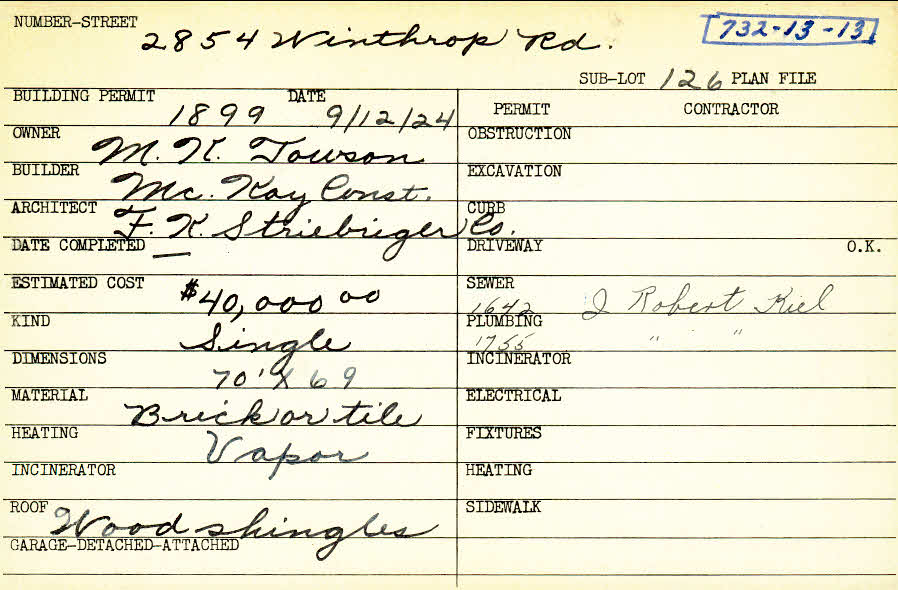 NUMBER-STREET
2854 Winthrop Rd.
732-13-13
SUB-LOT 126 PLAN FILE
BUILDING PERMIT DATE
1899 9/12/24
PERMIT CONTRACTOR
OWNER
M. K. Towson
OBSTRUCTION
BUILDER
Mc. Kay Const.
EXCAVATION
ARCHITECT
F. K. Striebinger Co.
CURB
DATE COMPLETED
—
DRIVEWAY O.K.
ESTIMATED COST
$40,000 00
SEWER
1642 J Robert Kiel
KIND
Single
PLUMBING
1755 " "
DIMENSIONS
70' X 69
INCINERATOR
MATERIAL
Brick or tile
ELECTRICAL
HEATING
Vapor
FIXTURES
INCINERATOR
HEATING
ROOF
Wood shingles
SIDEWALK
GARAGE-DETACHED-ATTACHED